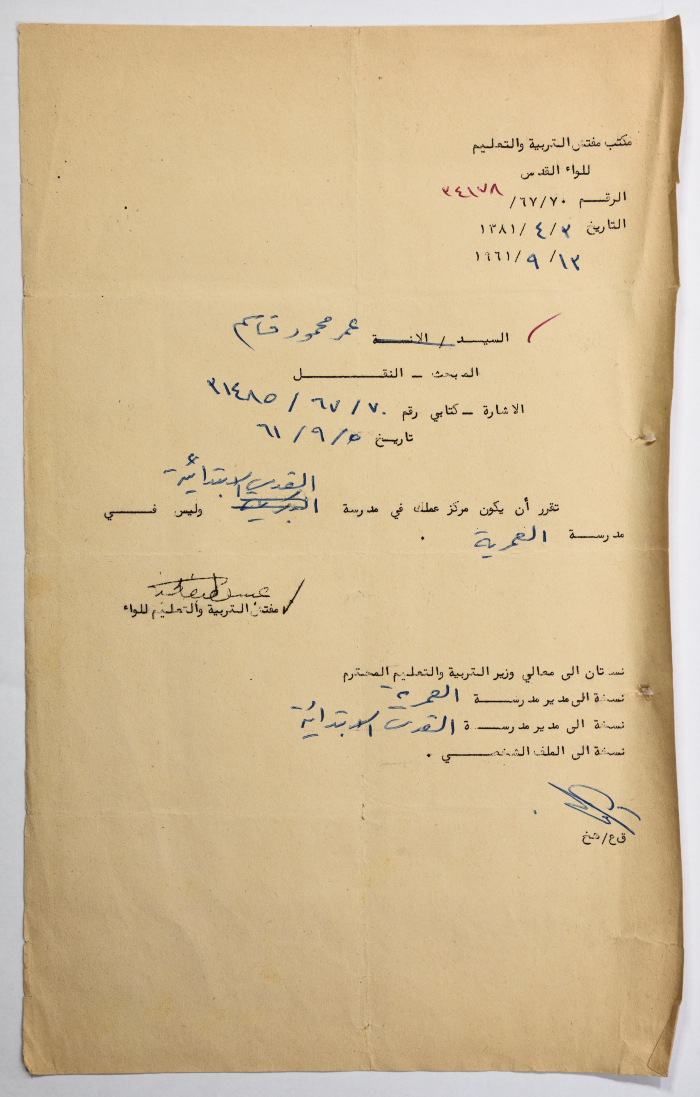 مكتب مفتش التربية والتعليم
للواء القدس
الرقم ٦٧/٧٠/ ٣٤١٧٨
التاريخ ٣/ ٤ /١٣٨١
١٣/ ٩ /١٩٦١
السيد/الانسة عمر محمود قاسم
المبحث - النقل
الاشارة - كتابي رقم ٦٧/٧٠/ ٣١٤٨٥
تاريخ ٥/ ٩ / ٦١
القدس الابتدائية
تقرر أن يكون مركز عملك في مدرسة وليس في
مدرسة العمرية .
مفتش التربية والتعليم للواء
نسختان الى معالي وزير التربية والتعليم المحترم
نسخة الى مدير مدرسة العمرية
نسخة الى مدير مدرسة القدس الابتدائية
نسخة الى الملف الشخصي .
ق ع/شخ